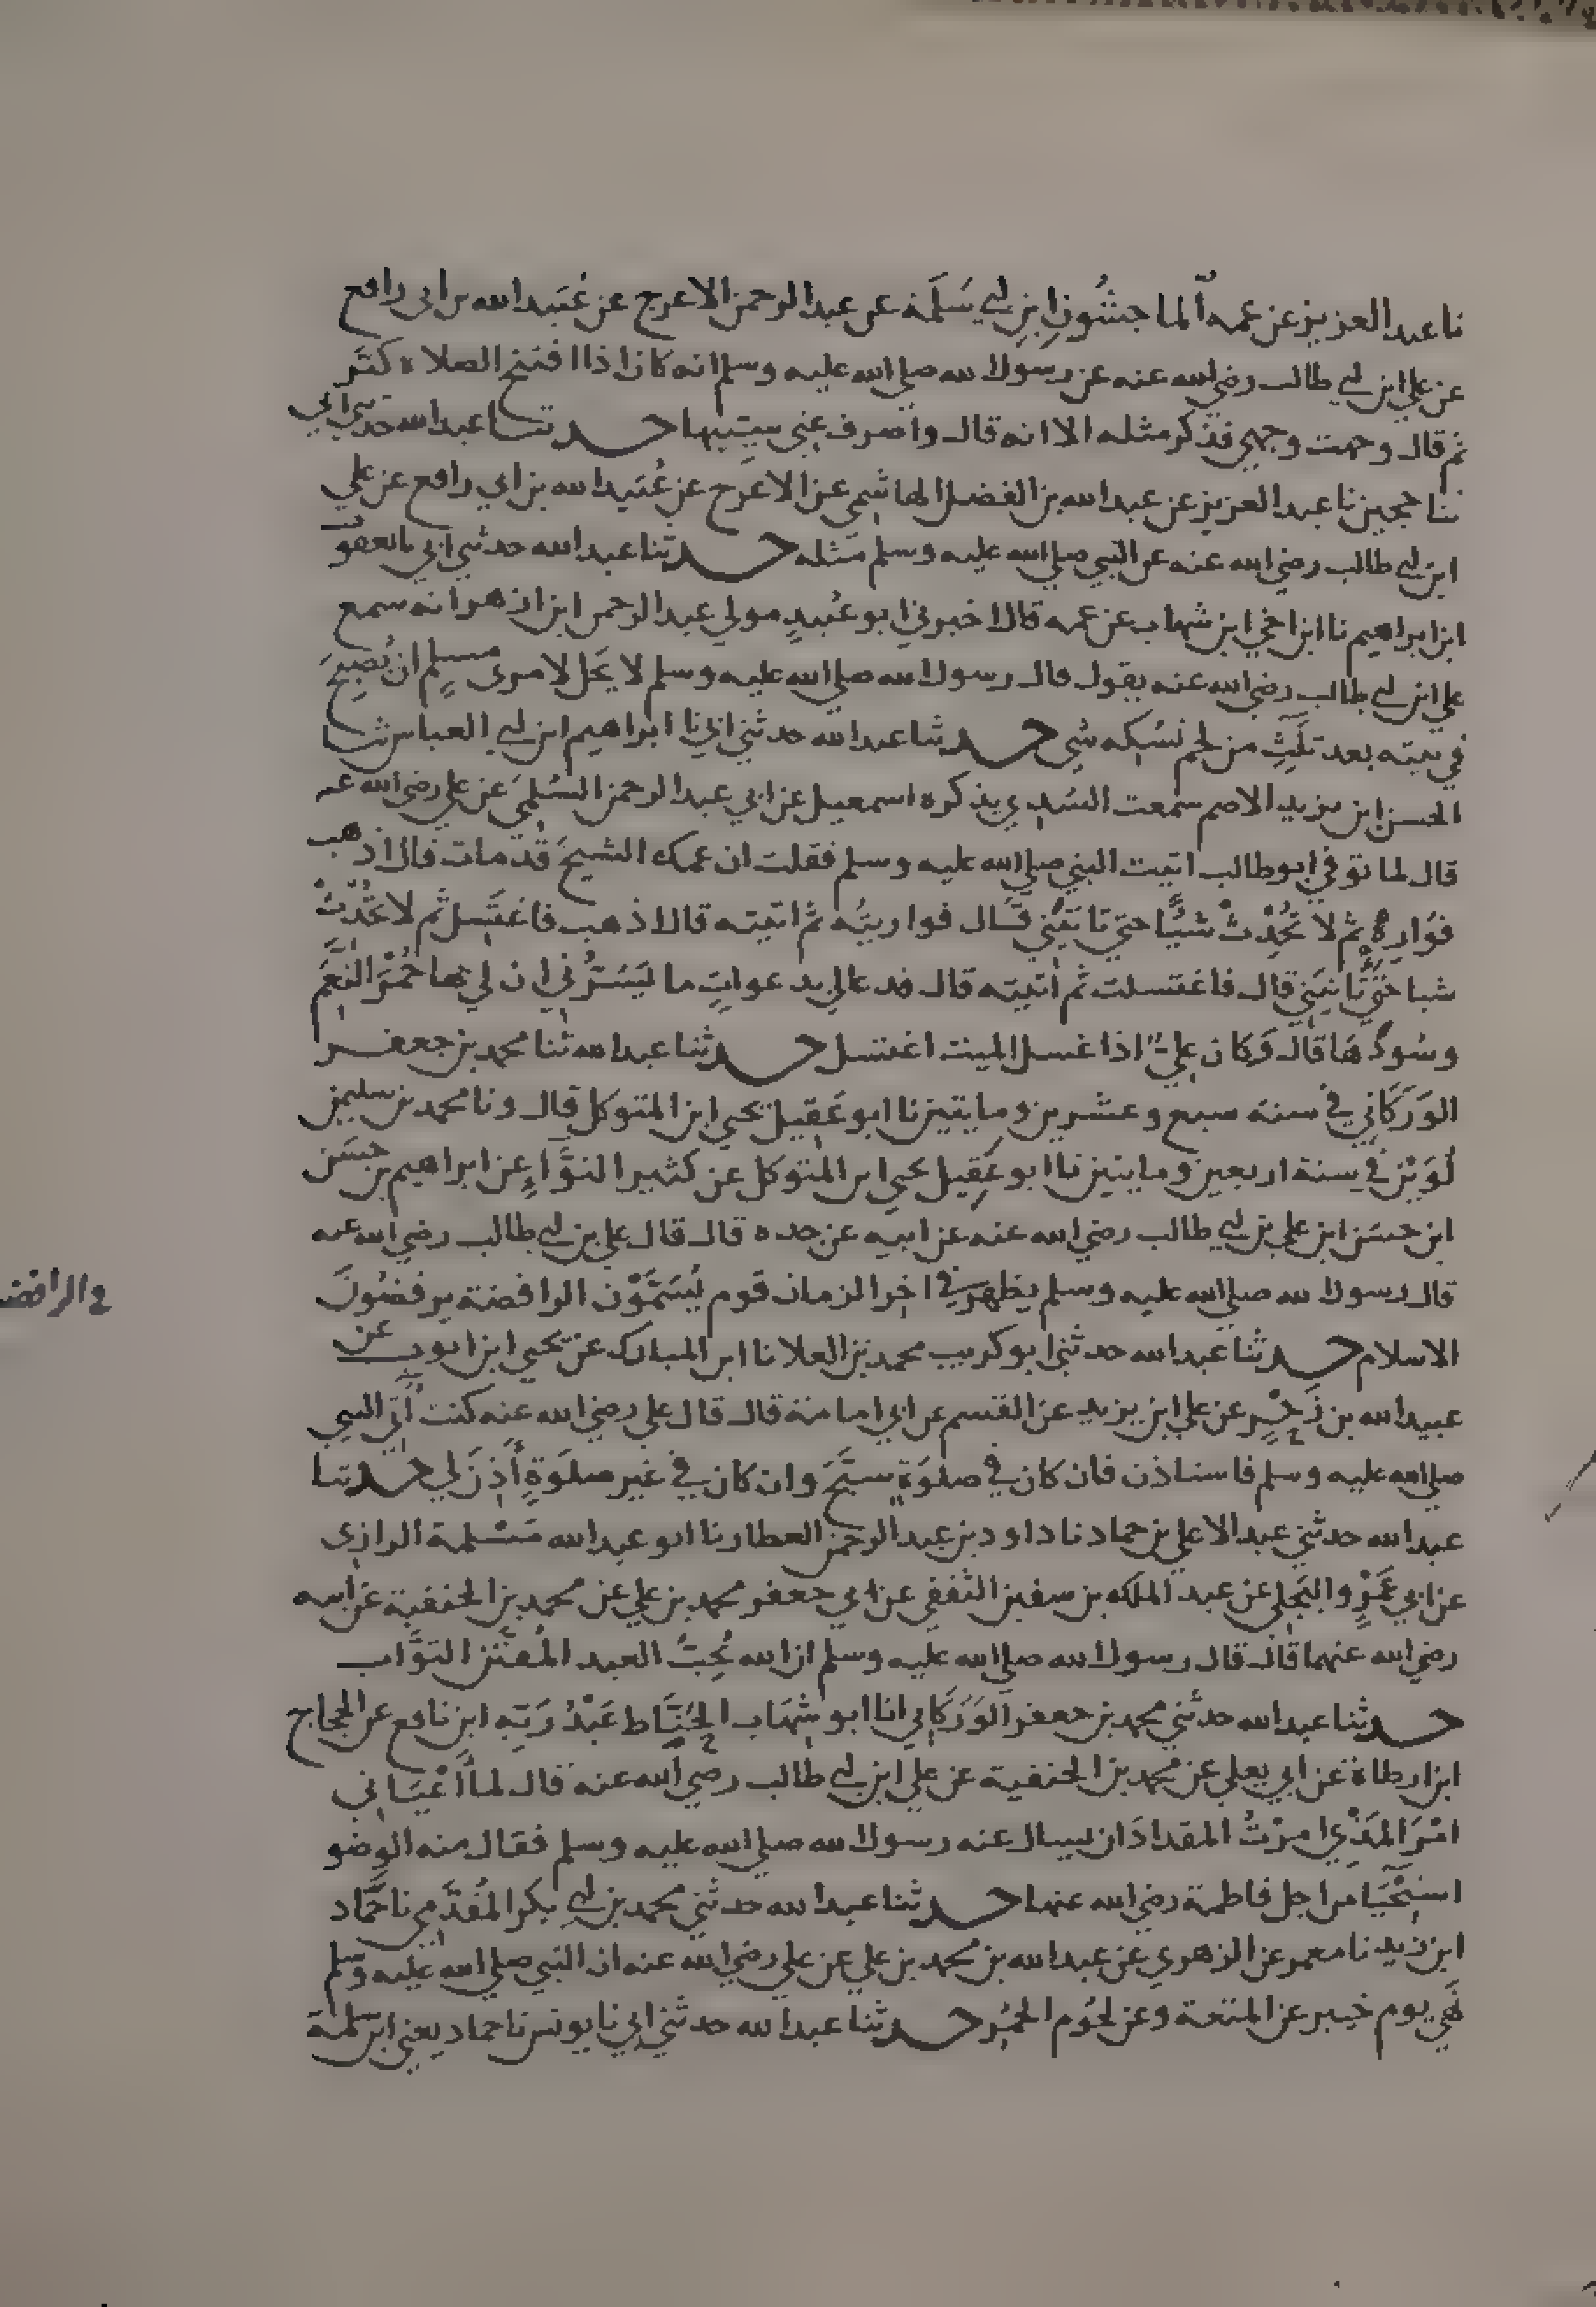 نا عبد العزيز عن عمه الماجشُونِ ابنِ ابي سَلَمَة عن عبد الرحمن الاعرج عن عُبَيد الله بن ابي رافع
عن علي ابن ابي طالب رضي الله عنه عن رسول الله صلى الله عليه وسلم انه كان اذا افتتح الصلاة كبّر
ثم قال وجهت وجهي فذكر مثله الا انه قال واصرف عني سيّيها حدثنا عبد الله حدثني ابي
ثنا حجين نا عبد العزيز عن عبد الله بن الفضل الهاشمي عن الاعرج عن عُبَيد الله بن ابي رافع عن علي
ابن ابي طالب رضي الله عنه عن النبي صلى الله عليه وسلم مثله حدثنا عبد الله حدثني ابي نا يعقوب
ابن ابراهيم نا ابن اخي ابن شهاب عن عمه قال اخبرني ابو عُبيدٍ مولى عبد الرحمن ابن ازهر انه سمع
علي ابن ابي طالب رضي الله عنه يقول قال رسول الله صلى الله عليه وسلم لا يحل لامرى مسلم ان يُصبحَ
في بيته بعد ثلثٍ من لحم نسُكه شي حدثنا عبد الله حدثني ابي نا ابراهيم ابن ابي العباس ثنا
الحسن ابن يزيد الاصم سمعت السُدي يذكره اسمعيل عن ابي عبد الرحمن السُلمي عن علي رضي الله عنه
قال لما توفي ابو طالب اتيت النبي صلى الله عليه وسلم فقلت ان عمك الشيخَ قد مات قال اذهب
فوَارِهِ ثم لا تُحدِثْ شيًّا حتى تاتيَني قال فواريتُه ثم اتيته قال اذهب فاغتسل ثم لا تُحْدِثْ
شيا حتى تاتيَني قال فاغتسلت ثم اتيته قال فدعا لي بدعواتٍ ما يَسُرُّني ان لي بها حُمْرَ النعَم
وسُودَهَا قال وَكان عليّ اذا غسل الميت اغتسل حدثنا عبد الله ثنا محمد بن جعفر
الوَرَكَاني في سنة سبع وعشرين ومايتين نا ابو عَقِيل يحيى ابن المتوكل قال ونا محمد بن سليمن
لُوَيْن في سنة اربعين ومايتين نا ابو عَقِيل يحيى ابن المتوكل عن كثير النوَّاءِ عن ابراهيم بن حسَن
ابن حسَن ابن علي بن ابي طالب رضي الله عنه عن ابيه عن جده قال قال علي بن ابي طالب رضي الله عنه
قال رسول الله صلى الله عليه وسلم يظهر في اخر الزمان قوم يُسَمَّوْن الرافضة يرفضُونَ
في الرافضة
الاسلام حدثنا عبد الله حدثني ابو كريب محمد بن العلا نا ابن المبارك عن يحيى ابن ايوب عن
عبيد الله بن زَحْر عن علي ابن يزيد عن القسم عن ابي امامة قال قال علي رضي الله عنه كنت آتي النبي
صلى الله عليه وسلم فاستاذن فان كان في صلوَةٍ سبَّحَ وان كان في غير صلوَةٍ أَذِنَ لي حدثنا
عبد الله حدثني عبد الاعلى بن حماد نا داود بن عبد الرحمن العطار نا ابو عبد الله مَسْلمة الرازي
عن ابي عَمْرٍو البَجلي عن عبد الملك بن سفين الثقفي عن ابي جعفر محمد بن علي عن محمد بن الحنفية عن ابيه
رضي الله عنهما قال قال رسول الله صلى الله عليه وسلم ان الله يُحِبُّ العبد المُفتَّن التوَّاب
حدثنا عبد الله حدثني محمد بن جعفر الوَرَكَاني انا ابو شِهَاب الحَنَّاط عَبْدُ رَبِّه ابن نافع عن الحجاج
ابن ارطاة عن ابي يعلى عن محمد بن الحنفية عن علي ابن ابي طالب رضي الله عنه قال لما أَعْيَاني
امْرَ المَذْيِ امرْتُ المقدادَ ان يسال عنه رسول الله صلى الله عليه وسلم فقال منه الوضو
استِحْيَا من اجل فاطمة رضي الله عنها حدثنا عبد الله حدثني محمد بن ابي بكر المُقدَّمي نا حَمَّاد
ابن زيد نا معمر عن الزهري عن عبد الله بن محمد بن علي عن علي رضي الله عنه ان النبي صلى الله عليه وسلم
نَهَى يوم خيبر عن المتعة وعن لحُوم الحُمُر حدثنا عبد الله حدثني ابي نا يونس نا حماد يعني ابن سلمة